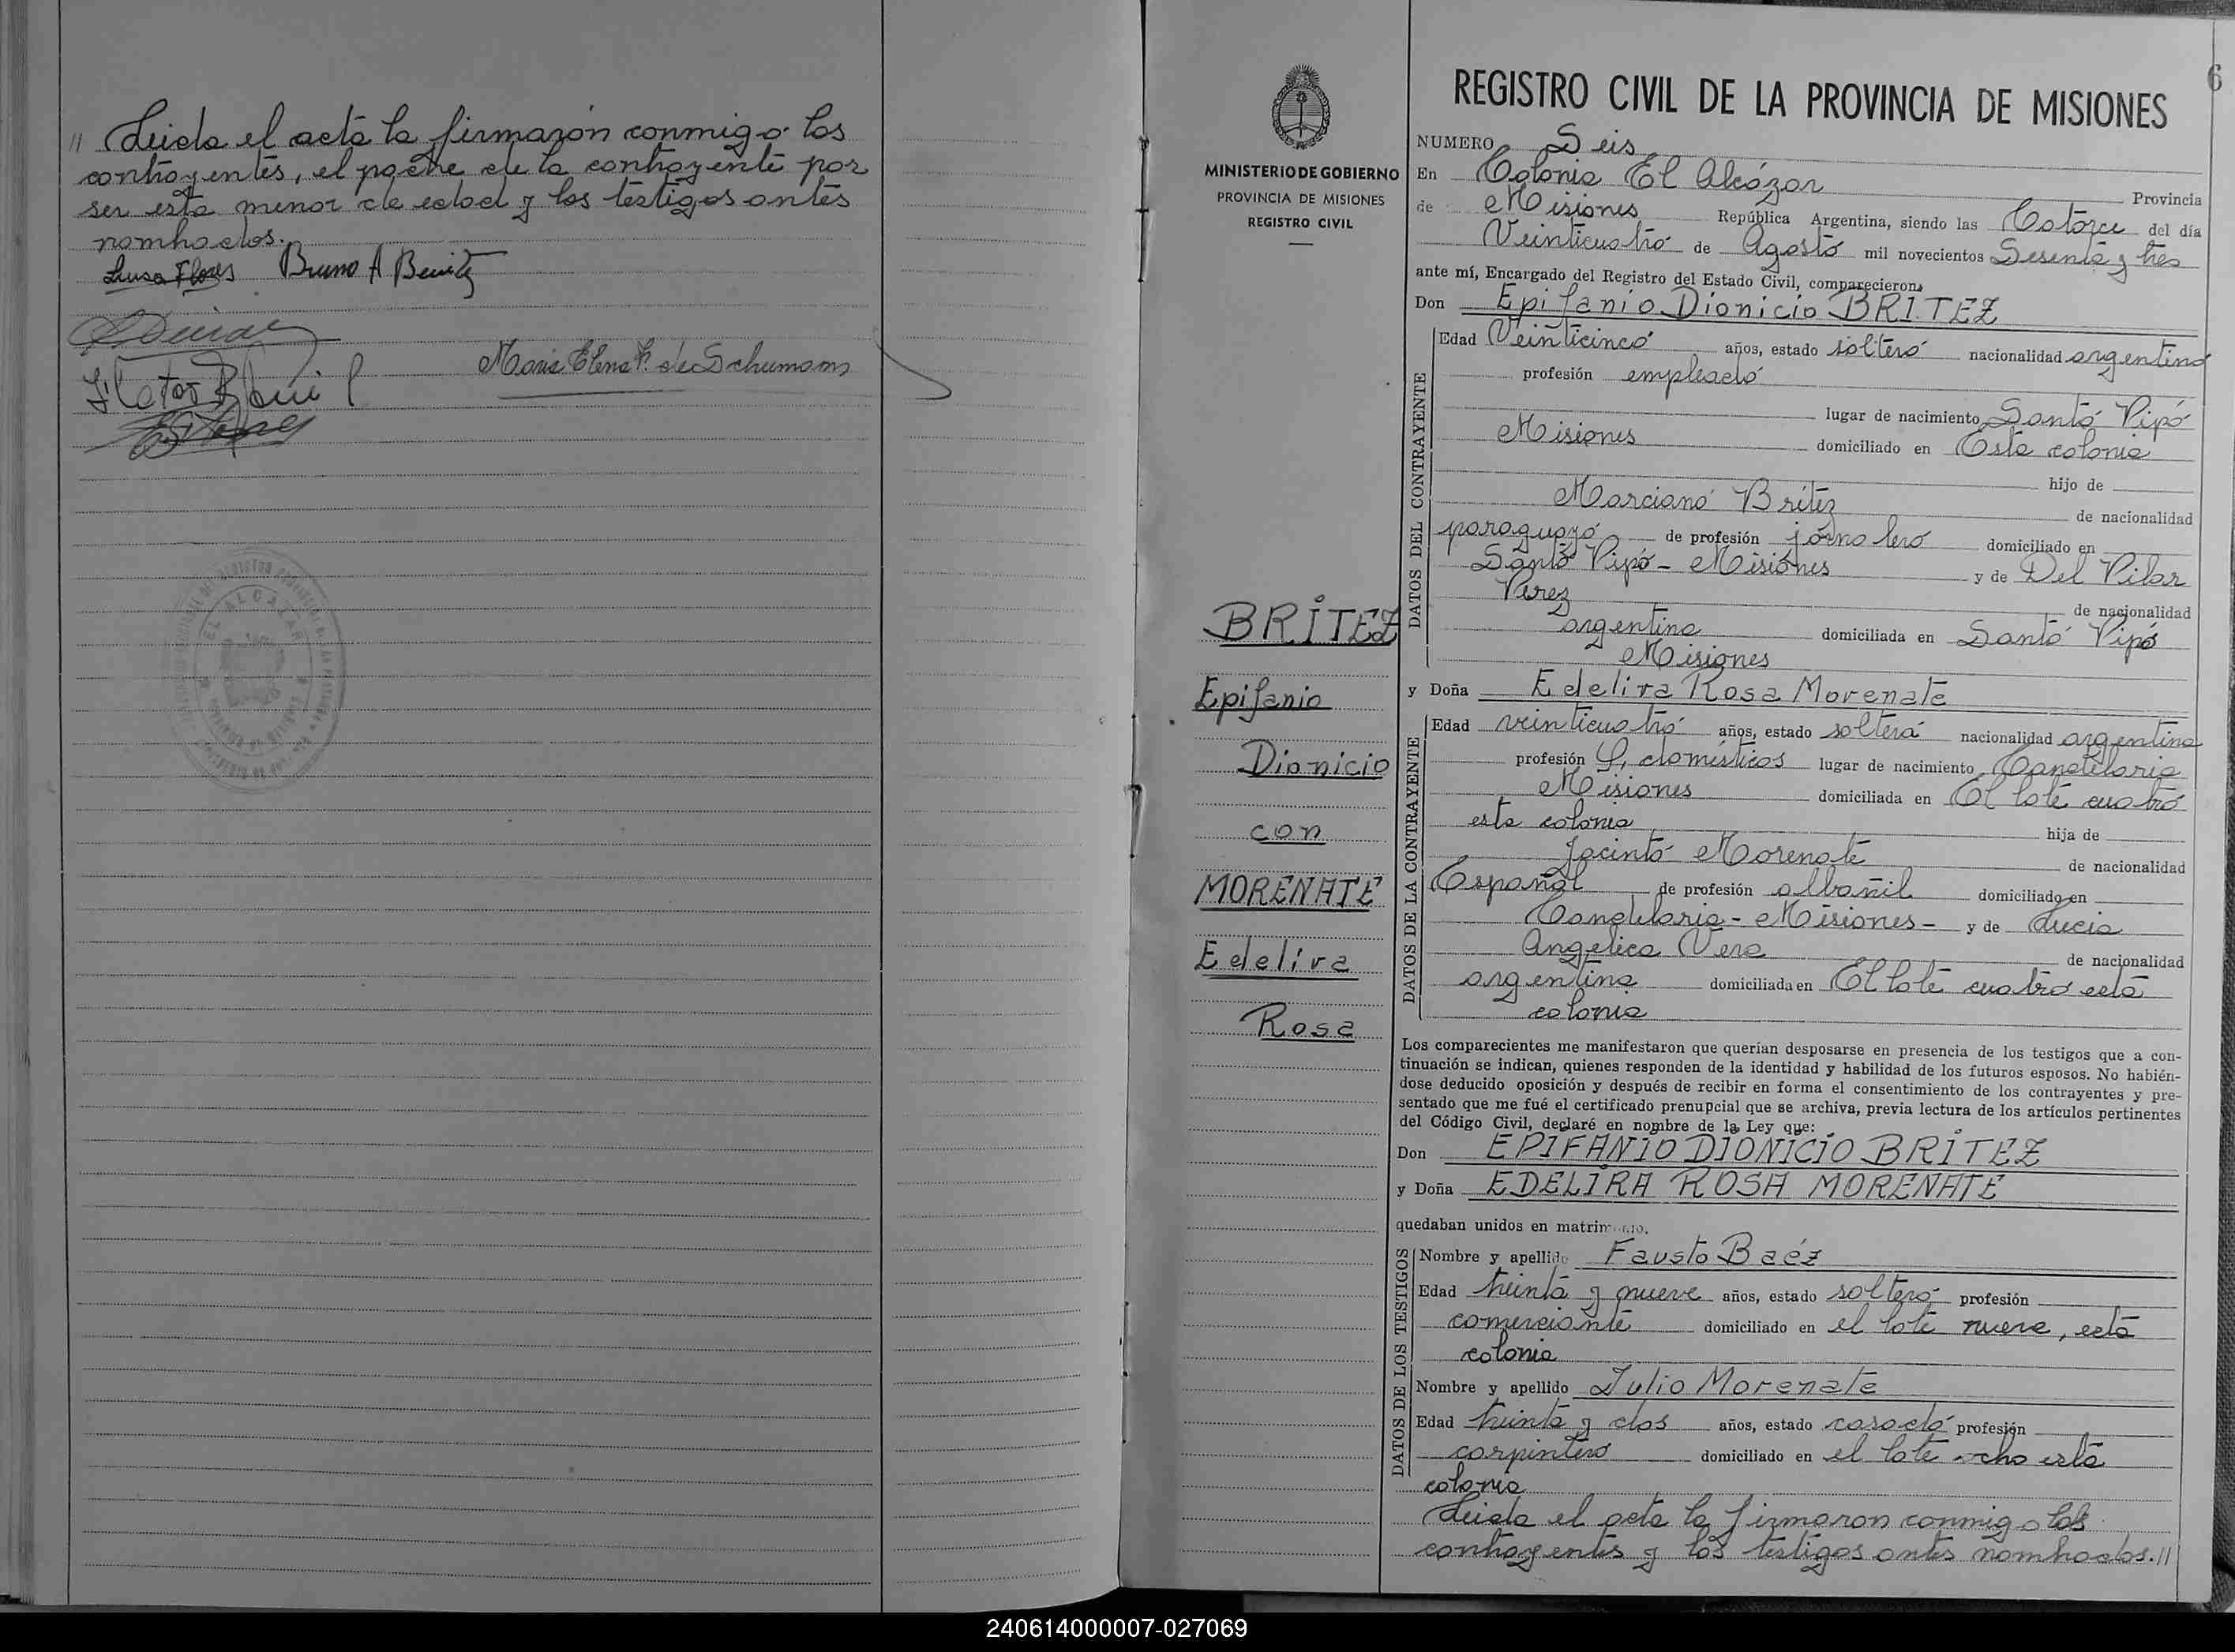 // Leida el acta la firmaron conmigo los
contrayentes, el padre de la contrayente por
ser esta menor de edad y los testigos antes
nombrados.
Luisa Flores Bruno A Benitez
Maria Elena F. de Schumann
EL ALCAZAR
6
MINISTERIO DE GOBIERNO
PROVINCIA DE MISIONES
REGISTRO CIVIL
BRITEZ
Epifanio
Dionicio
con
MORENATE
Edelira
Rosa
REGISTRO CIVIL DE LA PROVINCIA DE MISIONES
NUMERO Seis
En Colonia El Alcázar Provincia
de Misiones República Argentina, siendo las Catorce del día
Veinticuatro de Agosto mil novecientos Sesenta y tres
ante mí, Encargado del Registro del Estado Civil, comparecieron,
Don Epifanio Dionicio BRITEZ
DATOS DEL CONTRAYENTE
Edad Veinticinco años, estado soltero nacionalidad argentino
profesión empleado
lugar de nacimiento Santo Pipó
Misiones domiciliado en Esta colonia
hijo de
Marciano Britez de nacionalidad
paraguayo de profesión jornalero domiciliado en
Santo Pipó - Misiones y de Del Pilar
Perez de nacionalidad
argentina domiciliada en Santo Pipó
Misiones
y Doña Edelira Rosa Morenate
DATOS DE LA CONTRAYENTE
Edad veinticuatro años, estado soltera nacionalidad argentina
profesión Q. domésticos lugar de nacimiento Candelaria
Misiones domiciliada en El lote cuatro
esta colonia hija de
Jacinto Morenate de nacionalidad
Español de profesión albañil domiciliado en
Candelaria - Misiones - y de Lucia
Angelica Vera de nacionalidad
argentina domiciliada en El lote cuatro esta
colonia
Los comparecientes me manifestaron que querían desposarse en presencia de los testigos que a con-
tinuación se indican, quienes responden de la identidad y habilidad de los futuros esposos. No habién-
dose deducido oposición y después de recibir en forma el consentimiento de los contrayentes y pre-
sentado que me fué el certificado prenupcial que se archiva, previa lectura de los artículos pertinentes
del Código Civil, declaré en nombre de la Ley que:
Don EPIFANIO DIONICIO BRITEZ
y Doña EDELIRA ROSA MORENATE
quedaban unidos en matrimonio.
DATOS DE LOS TESTIGOS
Nombre y apellido Fausto Baéz
Edad treinta y nueve años, estado soltero profesión
comerciante domiciliado en el lote nueve, esta
colonia
Nombre y apellido Julio Morenate
Edad treinta y dos años, estado casado profesión
carpintero domiciliado en el lote ocho esta
colonia
Leida el acta la firmaron conmigo los
contrayentes y los testigos antes nombrados.//
240614000007-027069